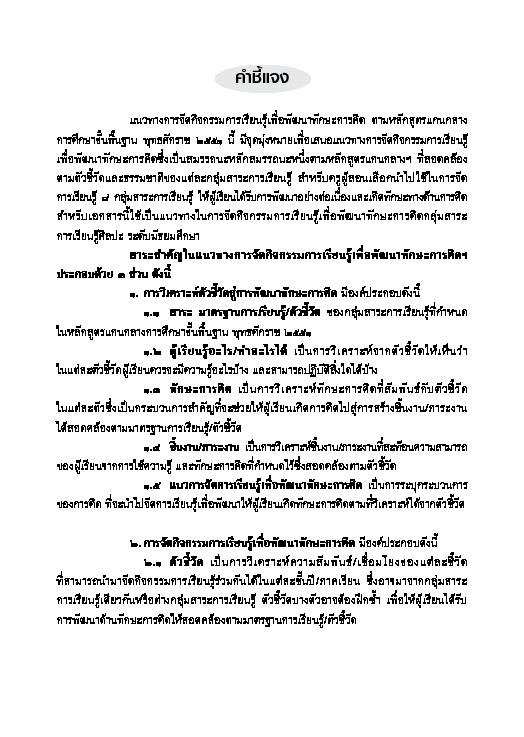 คำชี้แจง
แนวทางการจัดกิจกรรมการเรียนรู้เพื่อพัฒนาทักษะการคิด ตามหลักสูตรแกนกลาง
การศึกษาขั้นพื้นฐาน พุทธศักราช ๒๕๕๑ นี้ มีจุดมุ่งหมายเพื่อเสนอแนวทางการจัดกิจกรรมการเรียนรู้
เพื่อพัฒนาทักษะการคิดซึ่งเป็นสมรรถนะหลักสมรรถนะหนึ่งตามหลักสูตรแกนกลางฯ ที่สอดคล้อง
ตามตัวชี้วัดและธรรมชาติของแต่ละกลุ่มสาระการเรียนรู้ สำหรับครูผู้สอนเลือกนำไปใช้ในการจัด
การเรียนรู้ ๘ กลุ่มสาระการเรียนรู้ ให้ผู้เรียนได้รับการพัฒนาอย่างต่อเนื่องและเกิดทักษะทางด้านการคิด
สำหรับเอกสารนี้ใช้เป็นแนวทางในการจัดกิจกรรมการเรียนรู้เพื่อพัฒนาทักษะการคิดกลุ่มสาระ
การเรียนรู้ศิลปะ ระดับมัธยมศึกษา
สาระสำคัญในแนวทางการจัดกิจกรรมการเรียนรู้เพื่อพัฒนาทักษะการคิดฯ
ประกอบด้วย ๓ ส่วน ดังนี้
๑. การวิเคราะห์ตัวชี้วัดสู่การพัฒนาทักษะการคิด มีองค์ประกอบดังนี้
๑.๑ สาระ มาตรฐานการเรียนรู้/ตัวชี้วัด ของกลุ่มสาระการเรียนรู้ที่กำหนด
ในหลักสูตรแกนกลางการศึกษาขั้นพื้นฐาน พุทธศักราช ๒๕๕๑
๑.๒ ผู้เรียนรู้อะไร/ทำอะไรได้ เป็นการวิเคราะห์จากตัวชี้วัดให้เห็นว่า
ในแต่ละตัวชี้วัดผู้เรียนควรจะมีความรู้อะไรบ้าง และสามารถปฏิบัติสิ่งใดได้บ้าง
๑.๓ ทักษะการคิด เป็นการวิเคราะห์ทักษะการคิดที่สัมพันธ์กับตัวชี้วัด
ในแต่ละตัวซึ่งเป็นกระบวนการสำคัญที่จะช่วยให้ผู้เรียนเกิดการคิดไปสู่การสร้างชิ้นงาน/ภาระงาน
ได้สอดคล้องตามมาตรฐานการเรียนรู้/ตัวชี้วัด
๑.๔ ชิ้นงาน/ภาระงาน เป็นการวิเคราะห์ชิ้นงาน/ภาระงานที่สะท้อนความสามารถ
ของผู้เรียนจากการใช้ความรู้ และทักษะการคิดที่กำหนดไว้ซึ่งสอดคล้องตามตัวชี้วัด
๑.๕ แนวการจัดการเรียนรู้เพื่อพัฒนาทักษะการคิด เป็นการระบุกระบวนการ
ของการคิด ที่จะนำไปจัดการเรียนรู้เพื่อพัฒนาให้ผู้เรียนเกิดทักษะการคิดตามที่วิเคราะห์ได้จากตัวชี้วัด
๒. การจัดกิจกรรมการเรียนรู้เพื่อพัฒนาทักษะการคิด มีองค์ประกอบดังนี้
๒.๑ ตัวชี้วัด เป็นการวิเคราะห์ความสัมพันธ์/เชื่อมโยงของแต่ละชี้วัด
ที่สามารถนำมาจัดกิจกรรมการเรียนรู้ร่วมกันได้ในแต่ละชั้นปี/ภาคเรียน ซึ่งอาจมาจากกลุ่มสาระ
การเรียนรู้เดียวกันหรือต่างกลุ่มสาระการเรียนรู้ ตัวชี้วัดบางตัวอาจต้องฝึกซ้ำ เพื่อให้ผู้เรียนได้รับ
การพัฒนาด้านทักษะการคิดให้สอดคล้องตามมาตรฐานการเรียนรู้/ตัวชี้วัด